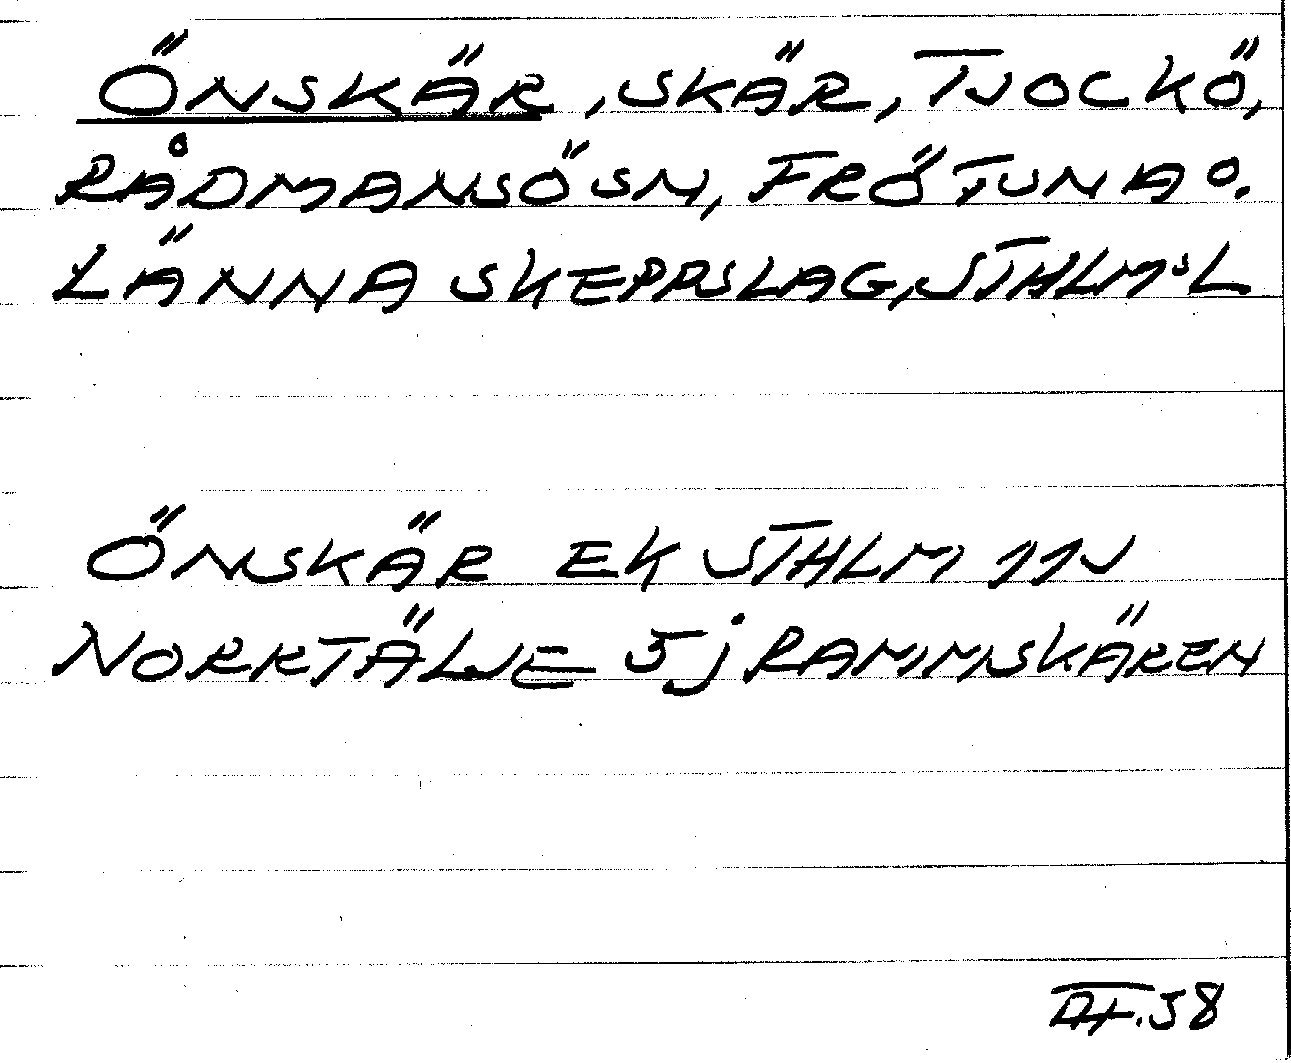 ÖNSKÄR, SKÄR, TJOCKÖ,
RÅDMANSÖ SN, FRÖTUNA O.
LÄNNA SKEPPSLAG, STHLMS L
ÖNSKÄR EK STHLM 11 V
NORRTÄLJE 5j RAMMSKÄREN
.58